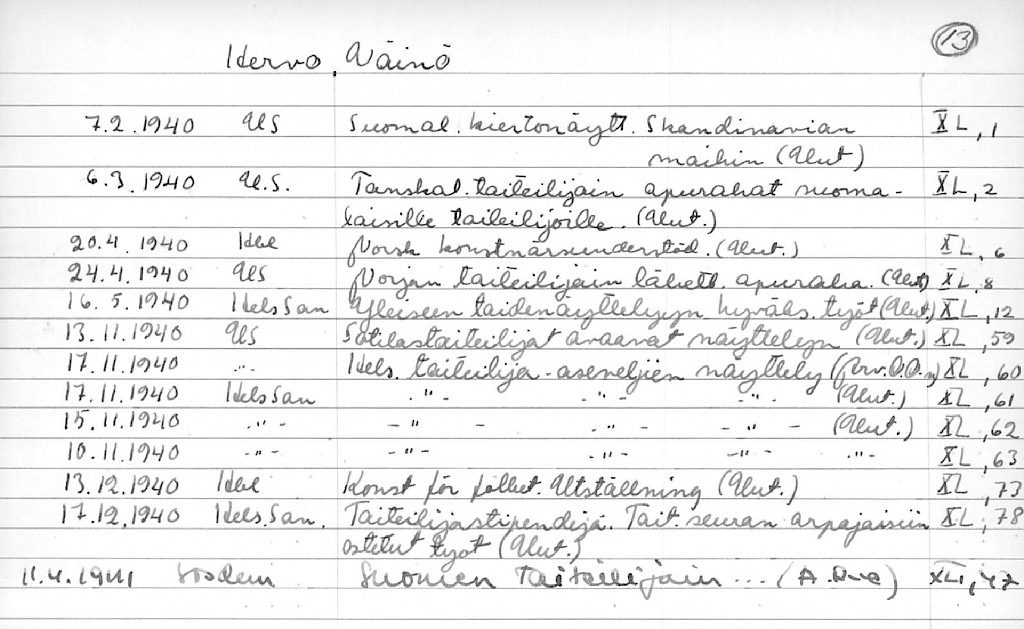 13
Hervo, Väinö
7.2.1940 US Suomal. kiertonäytt. Skandinavian XL, 1
maihin (Uut)
6.3.1940 U.S. Tanskal. taiteilijain apurahat suoma- XL, 2
laisille taiteilijoille. (Uut.)
20.4.1940 Hbl Norsk konstnärsunderstöd. (Uut.) XL, 6
24.4.1940 US Norjan taiteilijain lähett. apuraha. (Uut) XL, 8
16.5.1940 Hels San Yleiseen taidenäyttelyyn hyväks. työt (Uut.) XL, 12
13.11.1940 US Sotilastaiteilijat avaavat näyttelyn (Uut.) XL, 59
17.11.1940 -"- Hels. taiteilija-aseveljien näyttely XL, 60
17.11.1940 Hels San -"- -"- -"- (Uut.) XL, 61
15.11.1940 -"- -"- -"- -"- (Uut.) XL, 62
10.11.1940 -"- -"- -"- -"- -"- XL, 63
13.12.1940 Hbl Konst för folket. Utställning (Uut.) XL, 73
17.12.1940 Hels. San. Taiteilijastipendejä. Tait. seuran arpajaisiin XL, 78
ostetut työt (Uut.)
11.4.1941 Sosdem Suomen taiteilijain ... XLI, 47